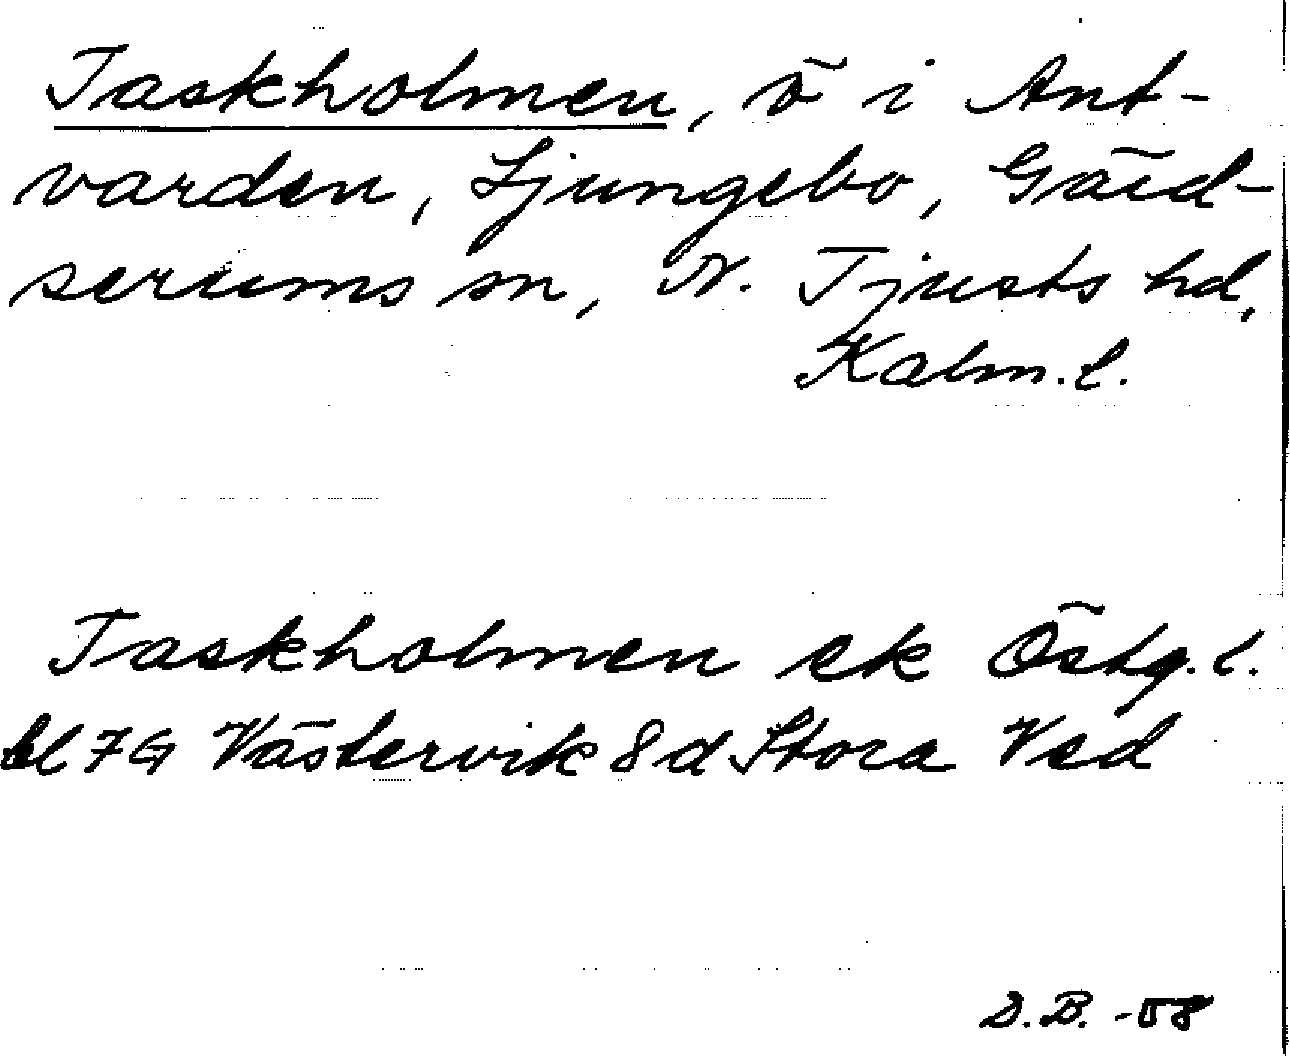 Taskholmen, ö i Ant-
varden, Ljungebo, Gärd-
serums sn, N. Tjusts hd,
Kalm. l.
Taskholmen ek Östg. l.
bl 7G Västervik 8 d Stora Ved
D.B. -58